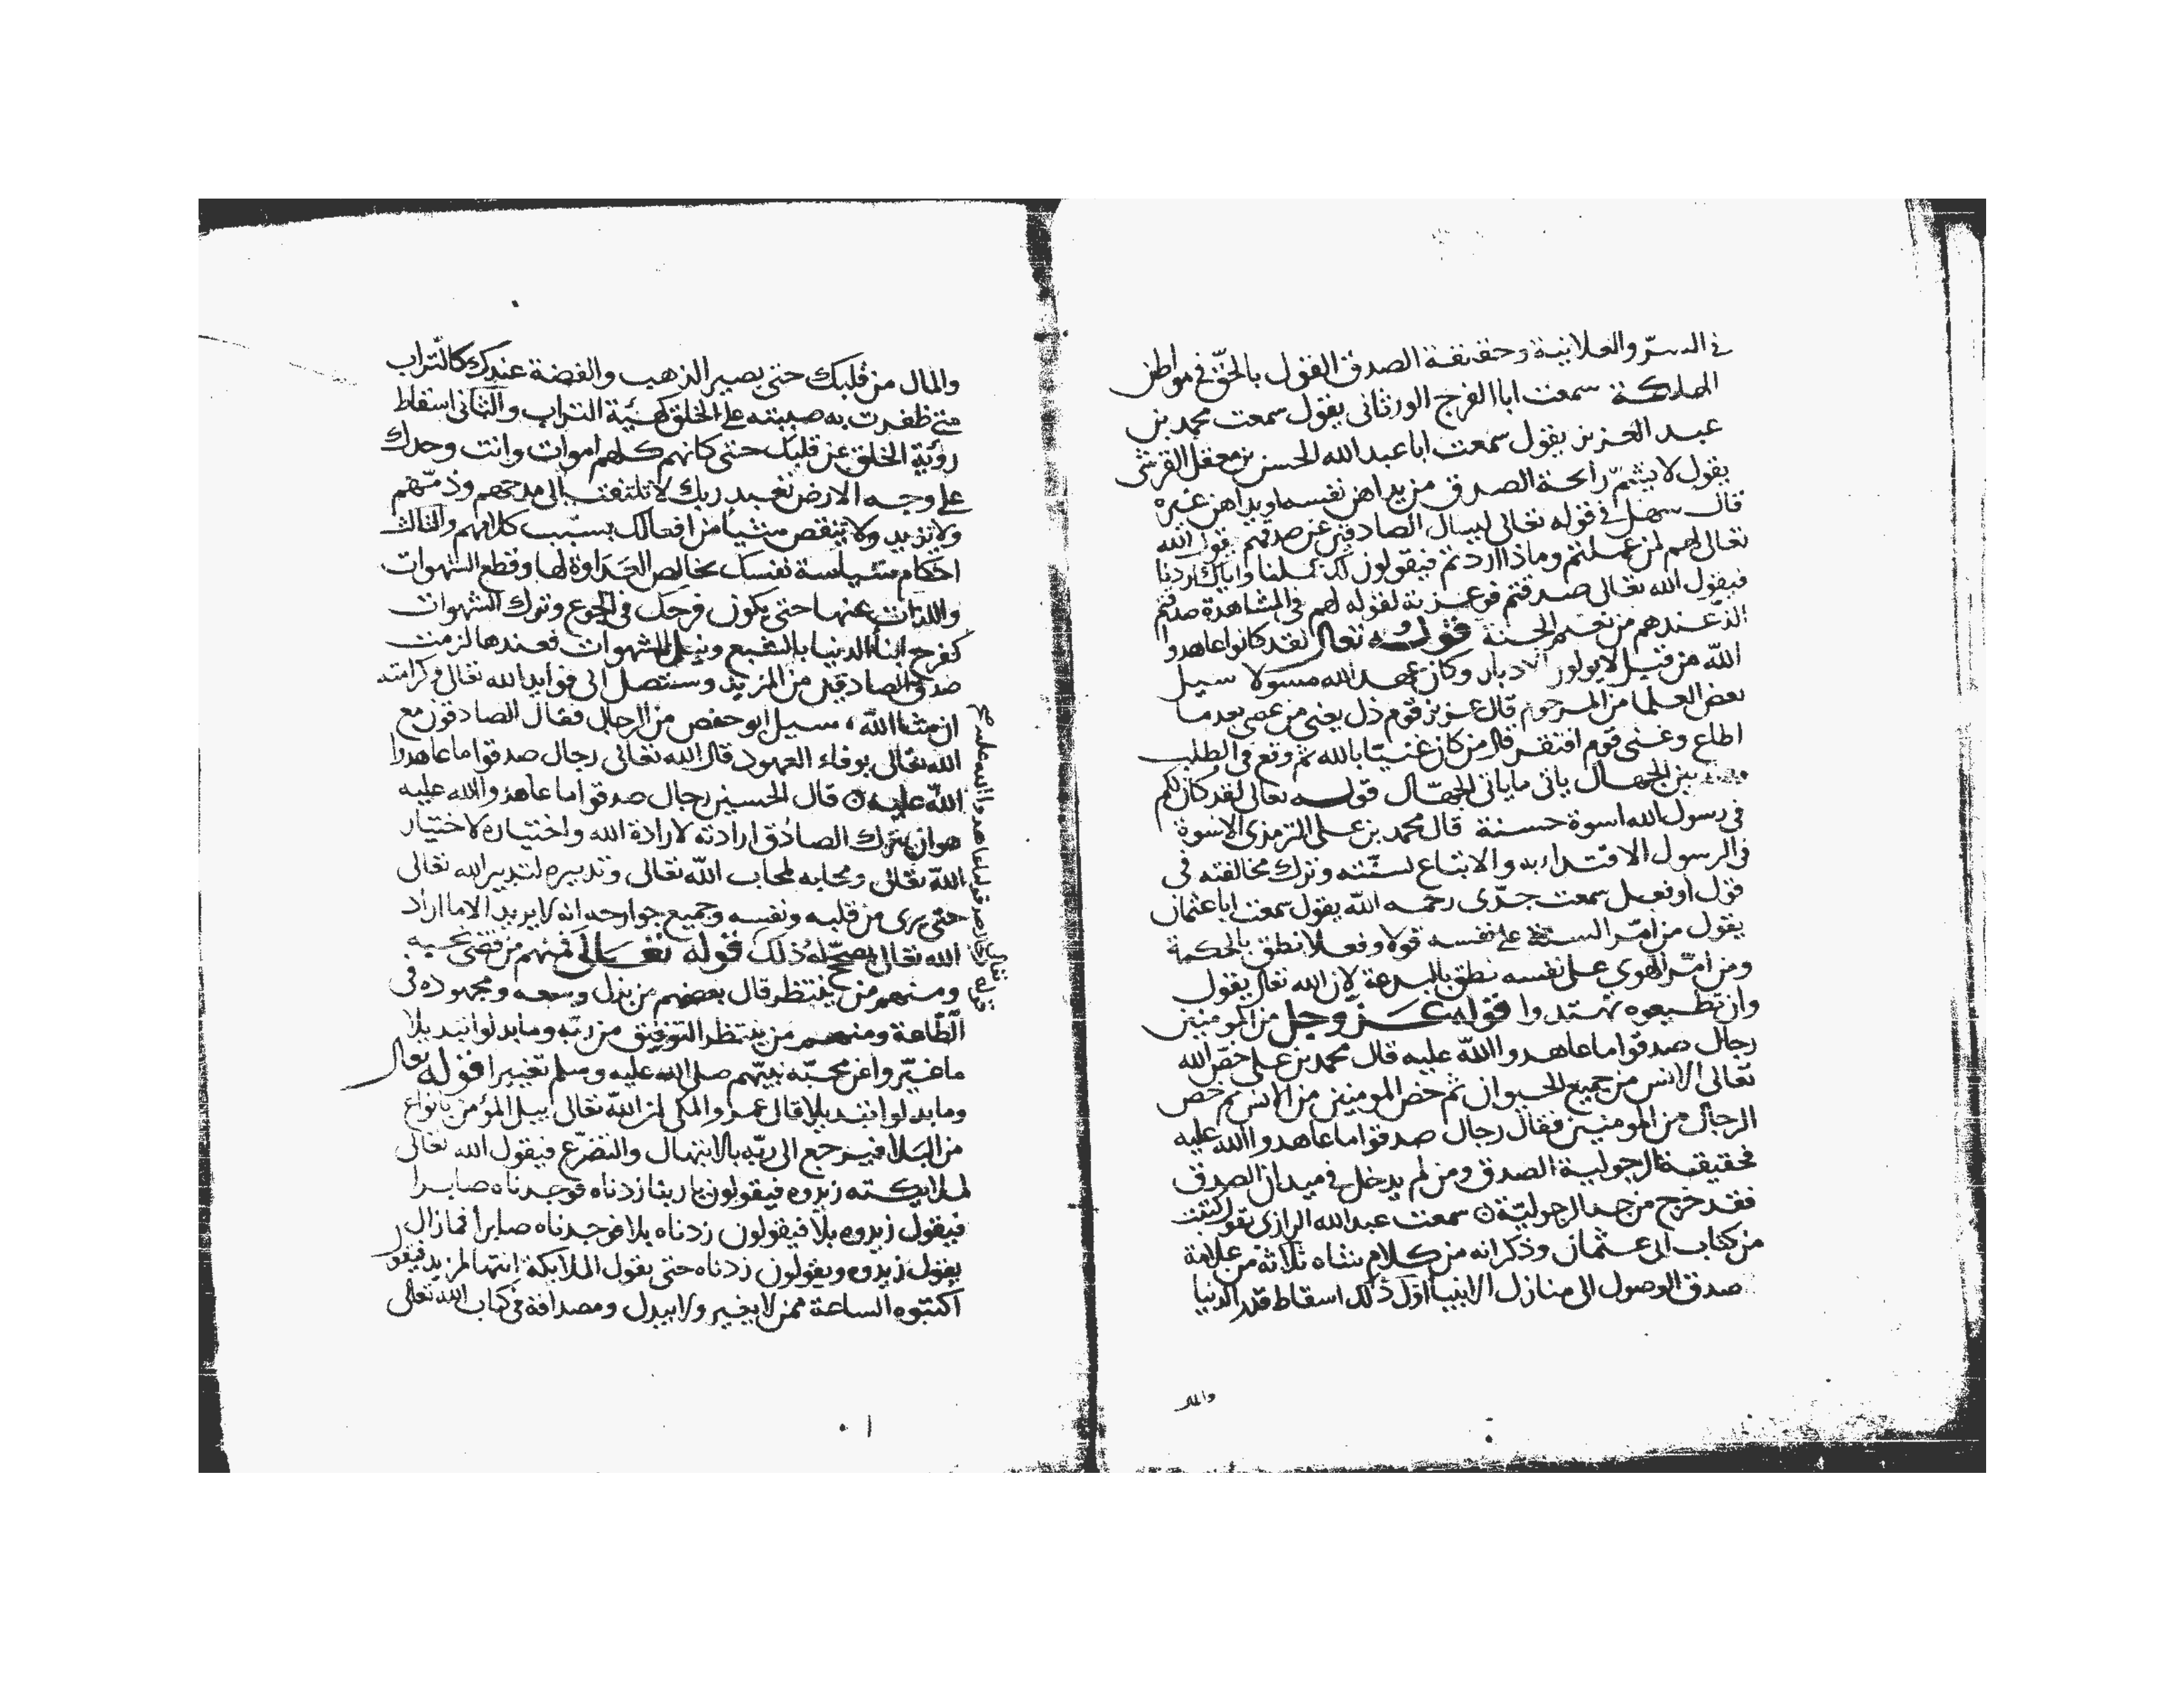 في السرّ والعلانية وحقيقة الصدق القول بالحقّ في مواطن
الهلكة سمعت ابا الفرج الورثاني يقول سمعت محمد بن
عبد العزيز يقول سمعت ابا عبد الله الحسن بن معقل القرشى
يقول لا يشمّ رائحة الصدق من يداهن نفسه او يداهن غيره
قال سهل في قوله تعالى ليسال الصادقين عن صدقهم يقول الله
تعالى لهم لمن عملتم وماذا اردتم فيقولون لك عملنا واياك اردنا
فيقول الله تعالى صدقتم فوعزته لقوله لهم في المشاهدة صدقتم
الذّ عندهم من نعيم الجنة قوله تعالى لقد كانوا عاهدوا
الله من قبل لا يولون الادبار وكان عهد الله مسولا سيل
بعض العلما من المرحوم قال عزيز قوم ذل يعني من عصى بعد ما
اطاع وغنى قوم افتقر قال من كان غنيّا بالله ثم وقع في الطلب
بين الجهال ياتى ما ياتى الجهّال قوله تعالى لقد كان لكم
في رسول الله اسوة حسنة قال محمد بن على الترمذى الاسوة
في الرسول الاقتداء به والاتباع لسنّته وترك مخالفته في
قول او فعل سمعت جدّى رحمه الله يقول سمعت ابا عثمان
يقول من امّر السنة على نفسه قولا وفعلا نطق بالحكمة
ومن امّر الهوي على نفسه نطق بالبدعة لان الله تعالى يقول
وان تطيعوه تهتدوا قوله عزّ وجل من المومنين
رجال صدقوا ما عاهدوا الله عليه قال محمد بن على خصّ الله
تعالى الانس من جميع الحيوان ثم خص المومنين من الانس ثم خص
الرجال من المومنين فقال رجال صدقوا ما عاهدوا الله عليه
فحقيقة الرجولية الصدق ومن لم يدخل في ميدان الصدق
فقد خرج من حد الرجوليّة سمعت عبد الله الرازى يقول كتبت
من كتاب ابى عثمان وذكر انه من كلام شاه ثلاثة من علامة
صدق الوصول الى منازل الانبيا اوّل ذلك اسقاط قدر الدنيا
والمال
والمال من قلبك حتى يصير الذهب والفضة عندك كالتراب
متى ظفرت به صببته على الخلق كهيئة التراب والثانى اسقاط
رؤية الخلق عن قلبك حتى كانهم كلهم اموات وانت وحدك
على وجه الارض تعبد ربك لا تلتفت الى مدحهم وذمّهم
ولا تزيد ولا تنقص شيأ من افعالك بسبب كلامهم والثالث
احكام سياسة نفسك بخالص العداوة لها وقطع الشهوات
واللذات عنها حتى يكون فرحك في الجوع وترك الشهوات
كفرح ابناء الدنيا بالشبع ونيل الشهوات فعندها لزمت
صدق الصادقين من المزيد وستصل الى فوايد الله تعالى وكرامته
ان شا الله سيل ابو حفص من الرجال فقال الصادقون مع
الله تعالى بوفاء العهود قال الله تعالى رجال صدقوا ما عاهدوا
الله عليه قال الحسين رجال صدقوا ما عاهدوا الله عليه
هو ان يترك الصادق ارادته لارادة الله واختياره لاختيار
الله تعالى ومحابه لمحاب الله تعالى وتدبيره لتدبير الله تعالى
حتى يرى من قلبه ونفسه وجميع جوارحه انه لا يريد الا ما اراد
الله تعالى ليصحّ له ذلك قوله تعالى فمنهم من قضى نحبه
ومنهم من ينتظر قال بعضهم من بذل وسعه ومجهوده في
الطّاعة ومنهم من ينتظر التوفيق من ربّه وما بدلوا تبديلا
ما غيّروا عن محبّة نبيّهم صلى الله عليه وسلم تغييرا قوله تعالى
وما بدلوا تبديلا قال عمرو المكى ان الله تعالى يبلى المؤمن بانواع
من البلا فيرجع الى ربّه بالابتهال والتضرّع فيقول الله تعالى
لملايكته زيدوه فيقولون يا ربنا زدناه فوجدناه صابرا
فيقول زيدوه بلاّ فيقولون زدناه بلا فوجدناه صابرا فما زال
يقول زيدوه ويقولون زدناه حتى يقول الملايكة انتها المزيد فيقول
اكتبوه الساعة ممن لا يغير ولا يبدل ومصداقه في كتاب الله تعالى
قوله تعالى رجال صدقوا ما عاهدوا الله عليه صح